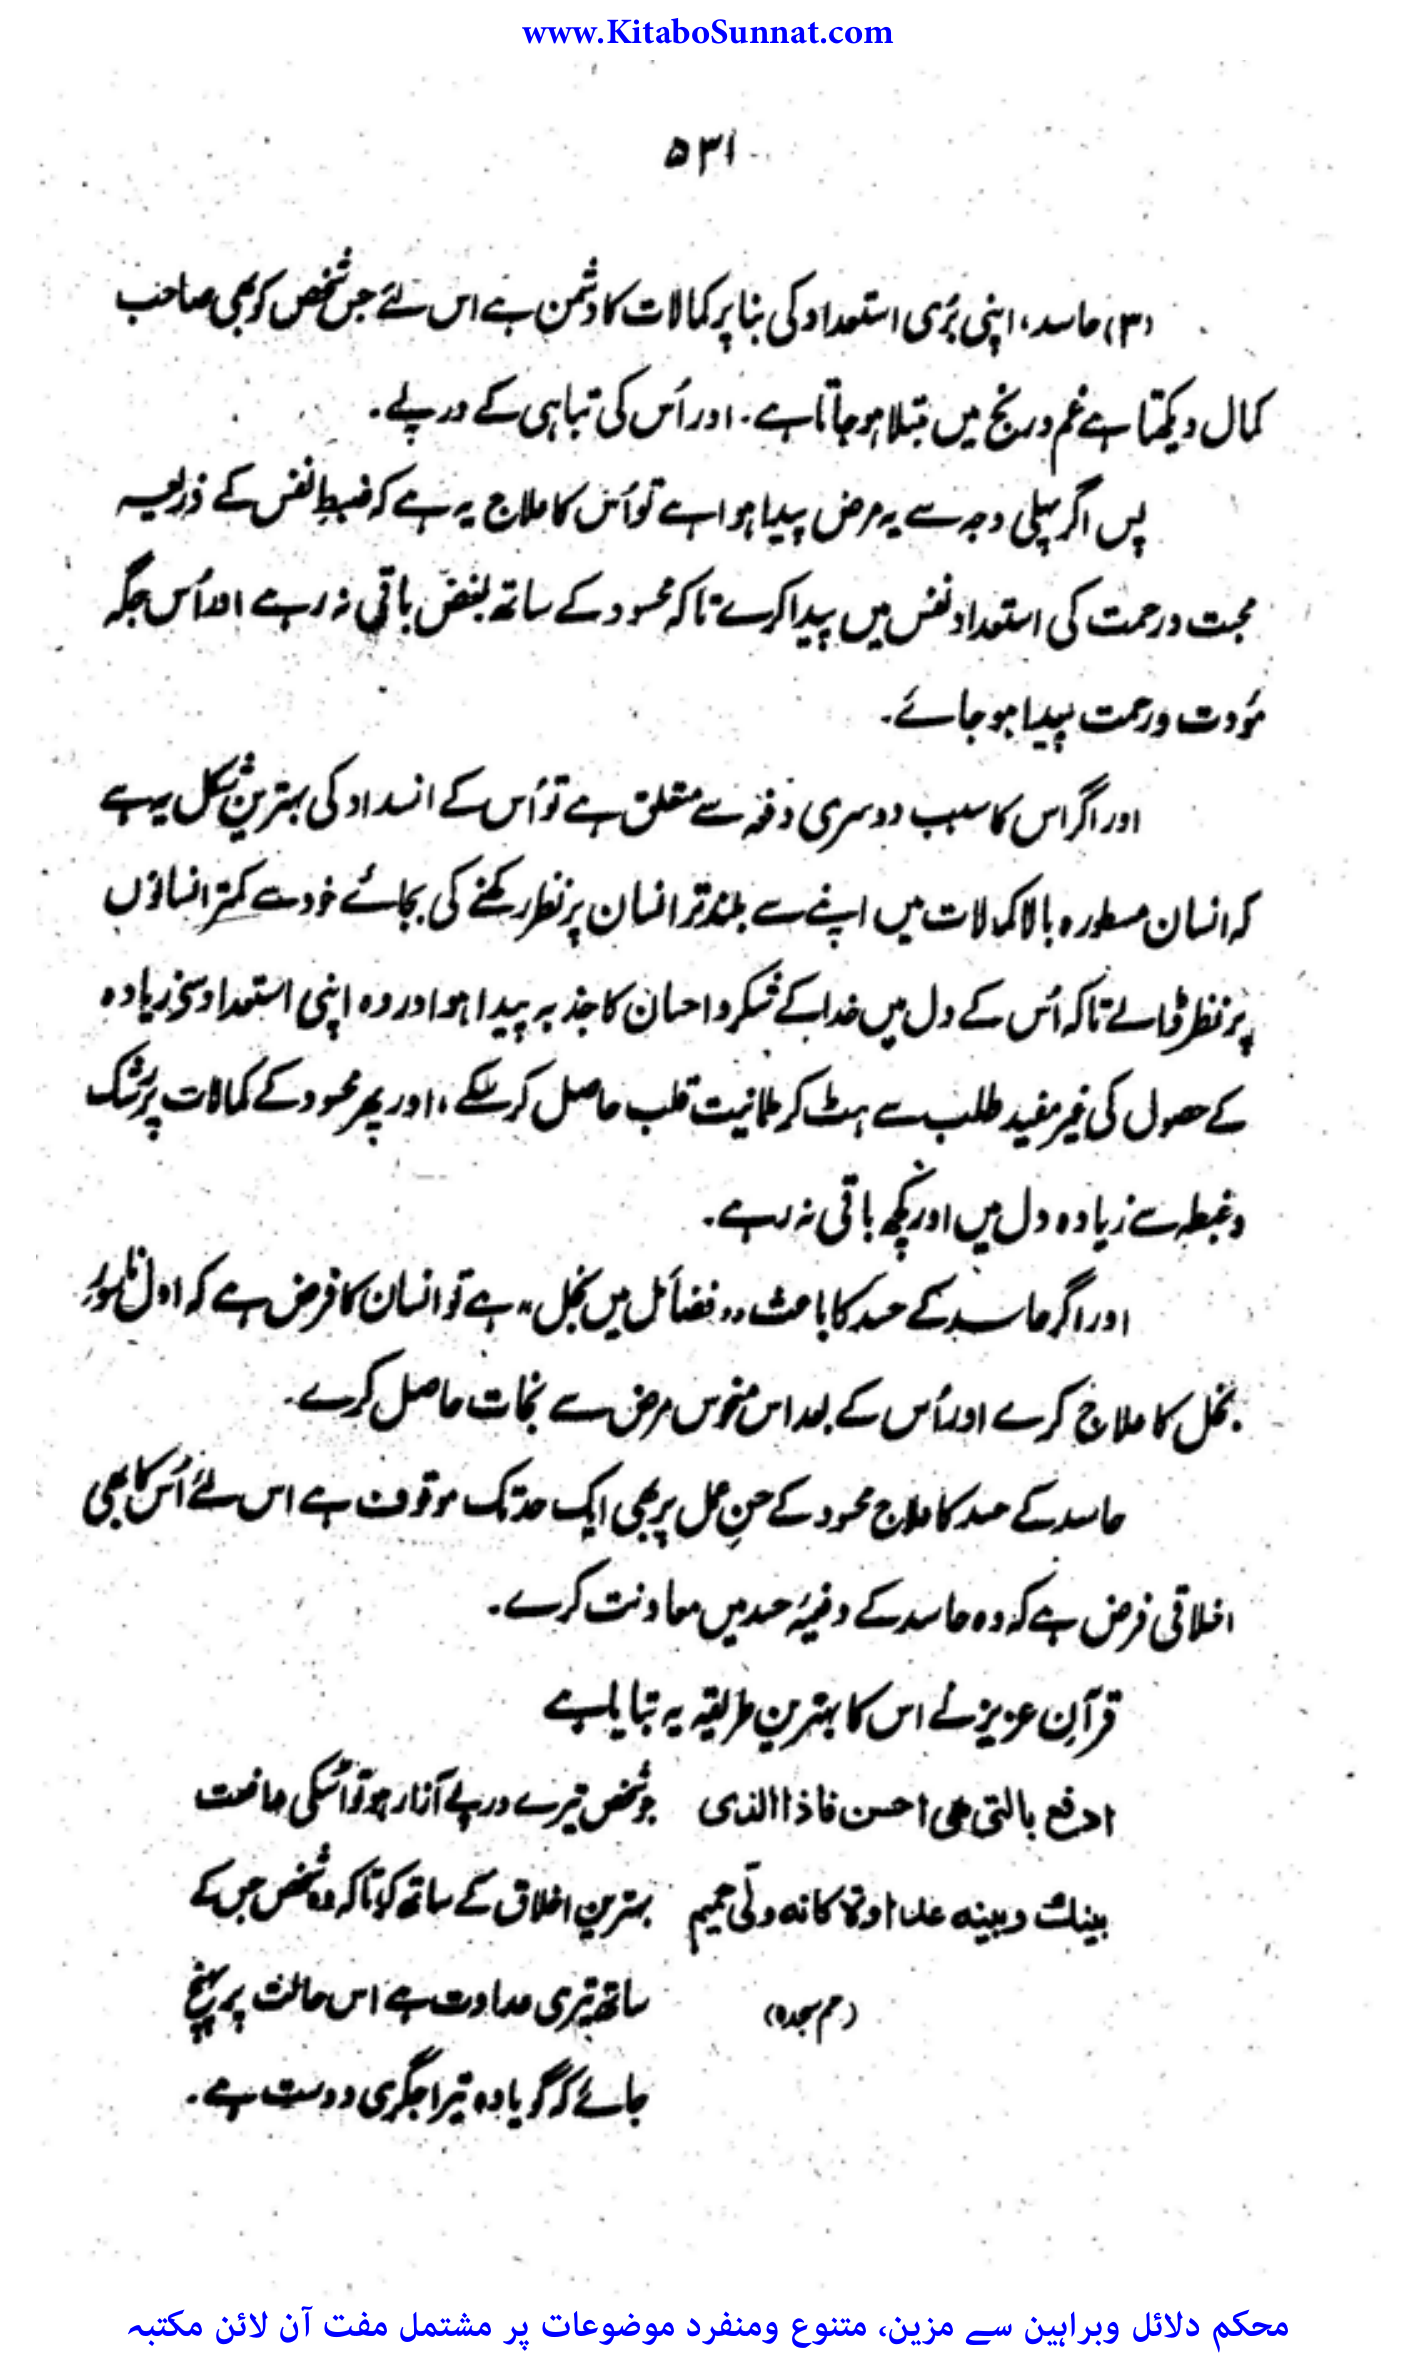 www.KitaboSunnat.com
۵۳۱
(۳) حاسد، اپنی بُری استعداد کی بنا پر کمالات کا دشمن ہے اس لئے جس شخص کو بھی صاحب
کمال دیکھتا ہے غم و رنج میں مبتلا ہو جاتا ہے۔ اور اُس کی تباہی کے درپے۔
پس اگر پہلی وجہ سے یہ مرض پیدا ہوا ہے تو اُس کا علاج یہ ہے کہ ضبطِ نفس کے ذریعہ
محبت و رحمت کی استعداد نفس میں پیدا کرے تاکہ محسود کے ساتھ بغض باقی نہ رہے اور اُس جگہ
مؤدت و رحمت پیدا ہو جائے۔
اور اگر اس کا سبب دوسری دفعہ سے متعلق ہے تو اُس کے انسداد کی بہترین شکل یہ ہے
کہ انسان مسطورہ بالا کمالات میں اپنے سے بلند تر انسان پر نظر رکھنے کی بجائے خود سے کمتر انسانوں
پر نظر ڈالے تاکہ اُس کے دل میں خدا کے شکر و احسان کا جذبہ پیدا ہو اور وہ اپنی استعداد سے زیادہ
کے حصول کی غیر مفید طلب سے ہٹ کر طمانیت قلب حاصل کر سکے، اور پھر محسود کے کمالات پر رشک
و غبطہ سے زیادہ دل میں اور کچھ باقی نہ رہے۔
اور اگر حاسد کے حسد کا باعث ,,فضائل میں بخل,, ہے تو انسان کا فرض ہے کہ اول ناسور
بخل کا علاج کرے اور اُس کے بعد اس منحوس مرض سے نجات حاصل کرے۔
حاسد کے حسد کا علاج محسود کے حسنِ عمل پر بھی ایک حد تک موقوف ہے اس لئے اُس کا بھی
اخلاقی فرض ہے کہ وہ حاسد کے دفیۂ حسد میں معاونت کرے۔
قرآنِ عزیز نے اس کا بہترین طریقہ یہ بتایا ہے
ادفع بالتی هی احسن فاذا الذی
بینك وبینه عداوة كانه ولّی حمیم
(حم سجدہ)
جو شخص تیرے درپے آزار ہو تو اُسکی مدافعت
بہترین اخلاق کے ساتھ کر تاکہ وہ شخص جس کے
ساتھ تیری عداوت ہے اس حالت پر پہنچ
جائے کہ گویا وہ تیرا جگری دوست ہے۔
محکم دلائل وبراہین سے مزین، متنوع ومنفرد موضوعات پر مشتمل مفت آن لائن مکتبہ